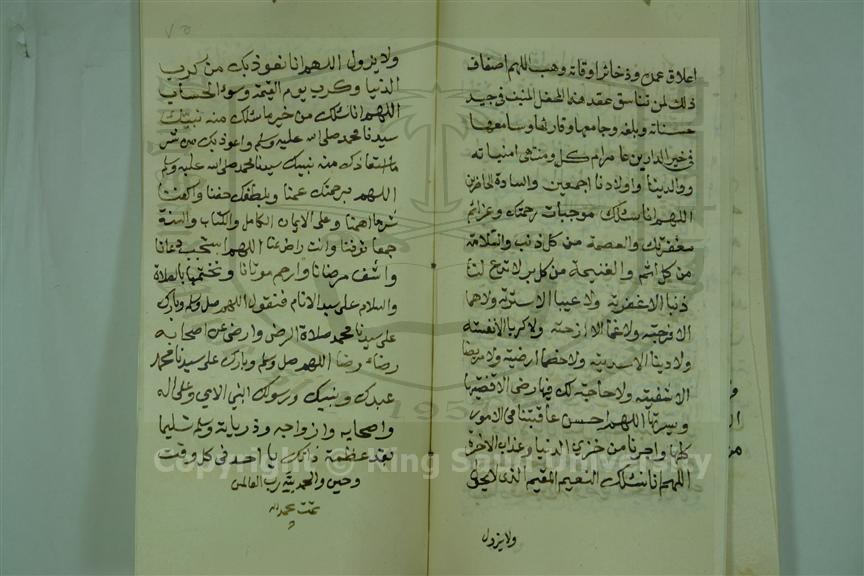 اعلاق عمل وذخائر اوقاته وهب اللهم اضعاف
ذلك لمن تناسق عقد هذا المحفل المنيف في جيد
حسناته وبلغه وجامعها وقارئها وسامعها
في خير الدارين غاية مرام كل ومنتهى امنياته
ووالدينا واولادنا اجمعين والسادة الحاضرين
اللهم انا نسئلك موجبات رحمتك وعزائم
مغفرتك والعصمة من كل ذنب والسلامة
من كل اثم والغنيمة من كل بر لا تدع لنا
ذنبا الا غفرته ولا عيبا الا سترته ولا هما
الا فرجته ولا غما الا ازحته ولا كربا الا نفسته
ولا دينا الا سديته ولا خصما ارضيته ولا مريضا
الا شفيته ولا حاجة لك فيها رضى الا قضيتها
ويسرتها اللهم احسن عاقبتنا في الامور
كلها واجرنا من خزي الدنيا وعذاب الاخرة
اللهم انا نسئلك النعيم المقيم الذي لا يحول
ولا يزول
٧٥
ولا يزول اللهم انا نعوذ بك من كرب
الدنيا وكرب يوم القيمة وسوء الحساب
اللهم انا نسئلك من خير ما سئلك منه نبيك
سيدنا محمد صلى الله عليه وسلم واعوذ بك من شر
ما استعاذك منه نبيك سيدنا محمد صلى الله عليه وسلم
اللهم برحمتك عمنا وبلطفك حفنا واكفنا
شر ما اهمنا وعلى الايمان الكامل والكتاب والسنة
جمعا توفنا وانت راض عنا اللهم استجب دعانا
واشف مرضانا وارحم موتانا ونختمها بالصلاة
والسلام على سيد الانام فنقول اللهم صل وسلم وبارك
على سيدنا محمد صلاة الرضى وارضى عن اصحابه
رضاء رضا اللهم صل وسلم وبارك على سيدنا محمد
عبدك ونبيك ورسولك النبي الامي وعلى اله
واصحابه وازواجه وذرياته وسلم تسليما
بقدر عظمة ذاتك يا احد في كل وقت
وحين والحمد لله رب العالمين
تمت بحمد الله
Copyright © King Saud University
195